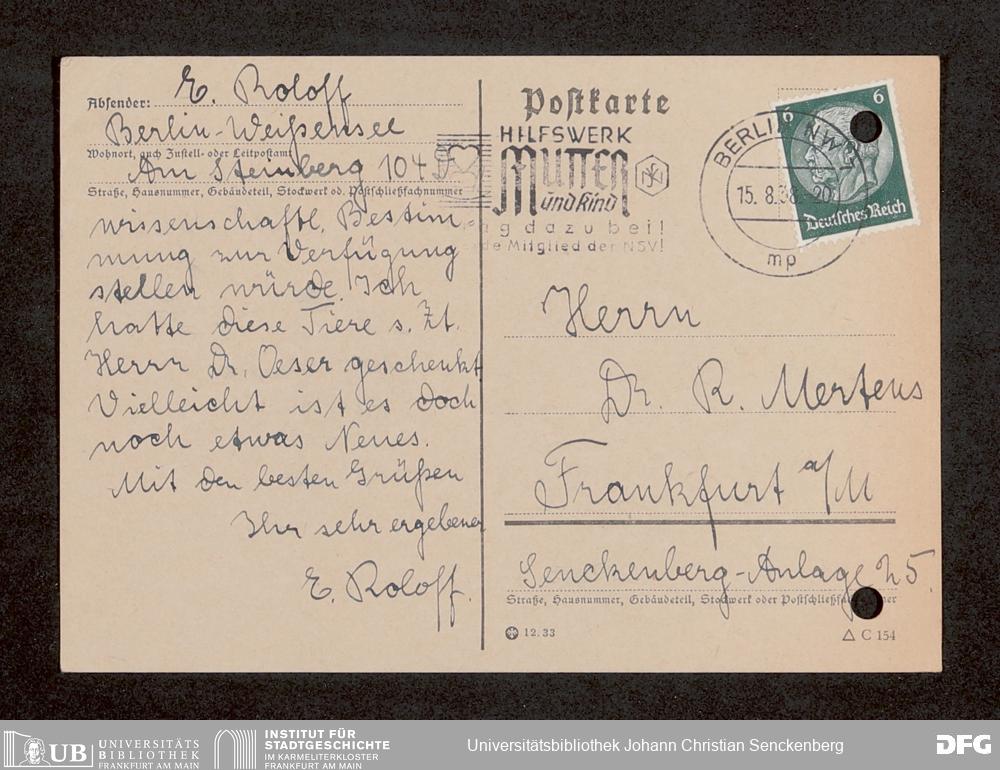 Absender: E. Roloff
Berlin-Weißensee
Wohnort, auch Zustell- oder Leitpostamt
Am Steinberg 104
Straße, Hausnummer, Gebäudeteil, Stockwerk od. Postschließfachnummer
wissenschaftl. Bestim-
mung zur Verfügung
stellen würde. Ich
hatte diese Tiere s. Zt.
Herrn Dr. Oeser geschenkt
Vielleicht ist es doch
noch etwas Neues.
Mit den besten Grüßen
Ihr sehr ergebener
E. Roloff.
Postkarte
HILFSWERK
MUTTER
und Kind
g dazu bei!
de Mitglied der NSV!
BERLIN NW
15. 8. 38 20
mp
6
6
Deutsches Reich
Herrn
Dr. R. Mertens
Frankfurt a/M
Senckenberg-Anlage 25
Straße, Hausnummer, Gebäudeteil, Stockwerk oder Postschließfachnummer
12.33
C 154
UB UNIVERSITÄTS
BIBLIOTHEK
FRANKFURT AM MAIN
INSTITUT FÜR
STADTGESCHICHTE
IM KARMELITERKLOSTER
FRANKFURT AM MAIN
Universitätsbibliothek Johann Christian Senckenberg
DFG